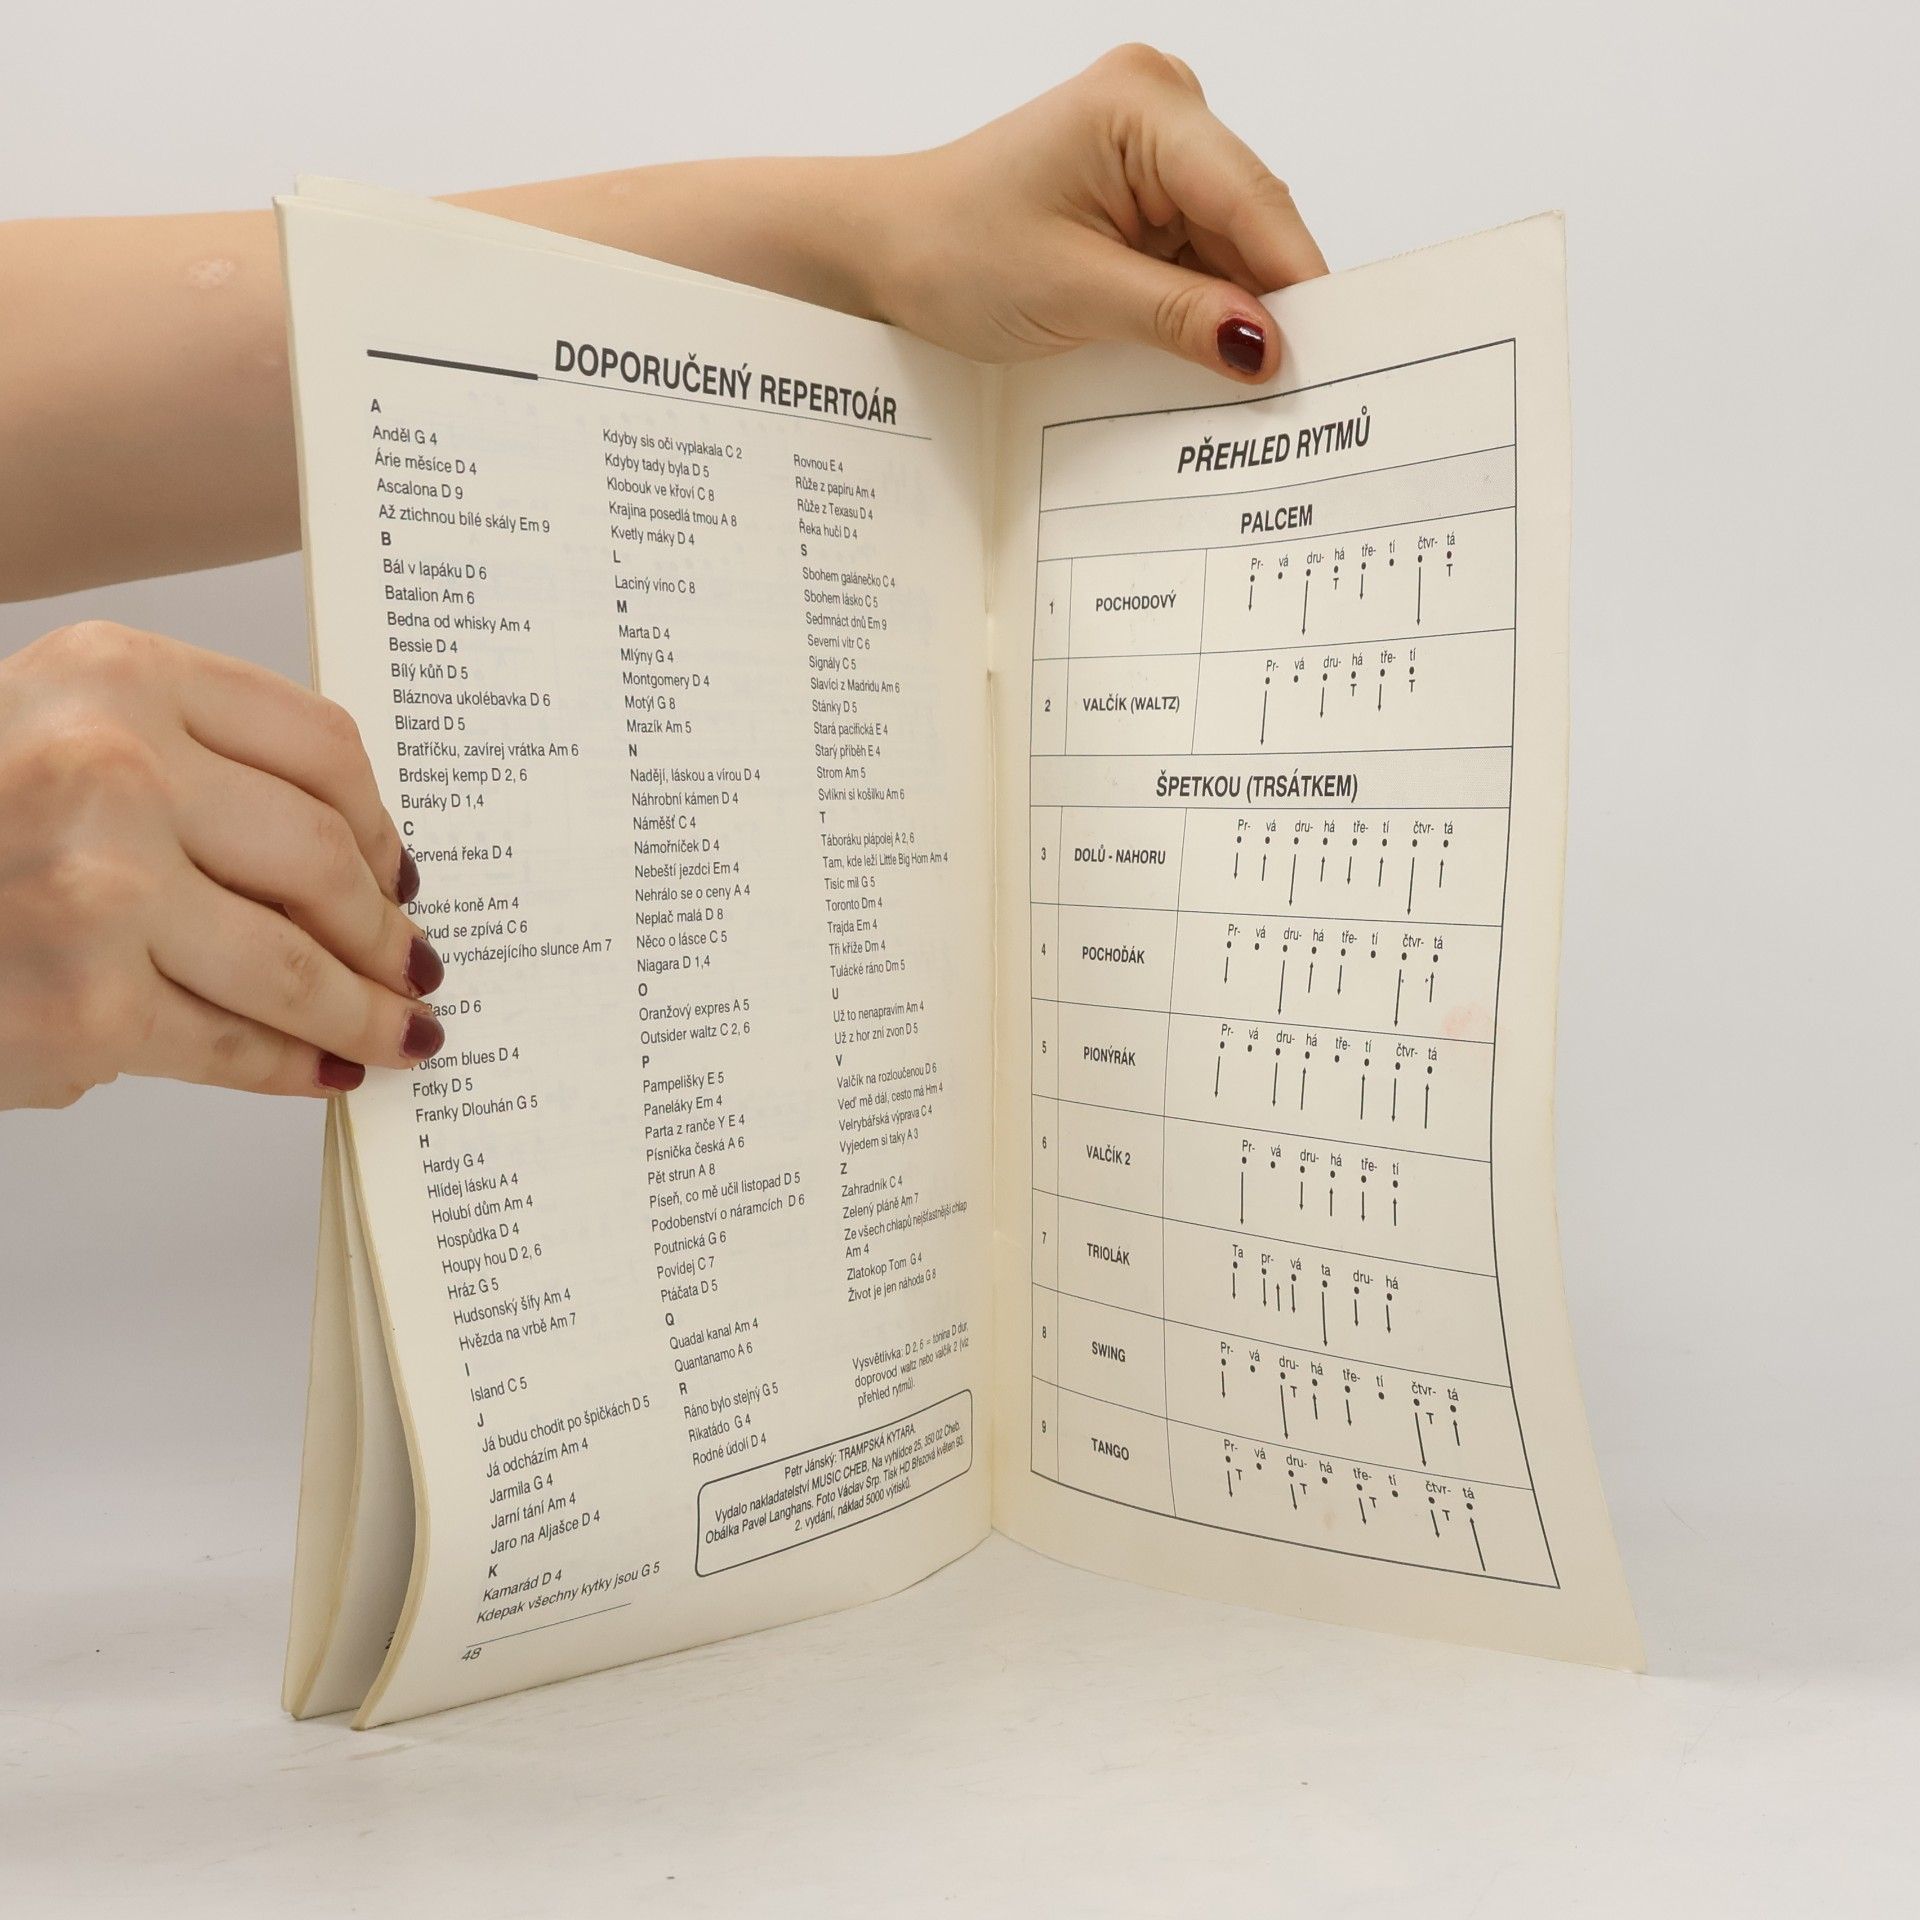 DOPORUČENÝ REPERTOÁR
A
Anděl G 4
Árie měsíce D 4
Ascalona D 9
Až ztichnou bílé skály Em 9
B
Bál v lapáku D 6
Batalion Am 6
Bedna od whisky Am 4
Bessie D 4
Bílý kůň D 5
Bláznova ukolébavka D 6
Blizard D 5
Bratříčku, zavírej vrátka Am 6
Brdskej kemp D 2, 6
Buráky D 1,4
C
Červená řeka D 4
Divoké koně Am 4
se zpívá C 6
u vycházejícího slunce Am 7
D 6
blues D 4
Fotky D 5
Franky Dlouhán G 5
H
Hardy G 4
Hlídej lásku A 4
Holubí dům Am 4
Hospůdka D 4
Houpy hou D 2, 6
Hráz G 5
Hudsonský šífy Am 4
Hvězda na vrbě Am 7
I
Island C 5
J
Já budu chodit po špičkách D 5
Já odcházím Am 4
Jarmila G 4
Jarní tání Am 4
Jaro na Aljašce D 4
K
Kamarád D 4
Kdepak všechny kytky jsou G 5
48
Kdyby sis oči vyplakala C 2
Kdyby tady byla D 5
Klobouk ve křoví C 8
Krajina posedlá tmou A 8
Kvetly máky D 4
L
Laciný víno C 8
M
Marta D 4
Mlýny G 4
Montgomery D 4
Motýl G 8
Mrazík Am 5
N
Nadějí, láskou a vírou D 4
Náhrobní kámen D 4
Náměšť C 4
Námořníček D 4
Nebeští jezdci Em 4
Nehrálo se o ceny A 4
Neplač malá D 8
Něco o lásce C 5
Niagara D 1,4
O
Oranžový expres A 5
Outsider waltz C 2, 6
P
Pampelišky E 5
Paneláky Em 4
Parta z ranče Y E 4
Písnička česká A 6
Pět strun A 8
Píseň, co mě učil listopad D 5
Podobenství o náramcích D 6
Poutnická G 6
Povídej C 7
Ptáčata D 5
Q
Quadal kanal Am 4
Quantanamo A 6
R
Ráno bylo stejný G 5
Rikatádo G 4
Rodné údolí D 4
Rovnou E 4
Růže z papíru Am 4
Růže z Texasu D 4
Řeka hučí D 4
S
Sbohem galánečko C 4
Sbohem lásko C 5
Sedmnáct dnů Em 9
Severní vítr C 6
Signály C 5
Slavíci z Madridu Am 6
Stánky D 5
Stará pacifická E 4
Starý příběh E 4
Strom Am 5
Svlíkni si košilku Am 6
T
Táboráku plápolej A 2, 6
Tam, kde leží Little Big Horn Am 4
Tisíc mil G 5
Toronto Dm 4
Trajda Em 4
Tři kříže Dm 4
Tulácké ráno Dm 5
U
Už to nenapravím Am 4
Už z hor zní zvon D 5
V
Valčík na rozloučenou D 6
Veď mě dál, cesto má Hm 4
Velrybářská výprava C 4
Vyjedem si taky A 3
Z
Zahradník C 4
Zelený pláně Am 7
Ze všech chlapů nejšťastnější chlap
Am 4
Zlatokop Tom G 4
Život je jen náhoda G 8
Vysvětlivka: D 2, 6 = tónina D dur,
doprovod waltz nebo valčík 2 (viz
přehled rytmů).
Petr Jánský: TRAMPSKÁ KYTARA.
Vydalo nakladatelství MUSIC CHEB, Na vyhlídce 25, 350 02 Cheb.
Obálka Pavel Langhans. Foto Václav Srp. Tisk HD Březová květen 93.
2. vydání, náklad 5000 výtisků.
PŘEHLED RYTMŮ
PALCEM
Pr- vá dru- há tře- tí čtvr- tá
T T
1 POCHODOVÝ
Pr- vá dru- há tře- tí
T T
2 VALČÍK (WALTZ)
ŠPETKOU (TRSÁTKEM)
Pr- vá dru- há tře- tí čtvr- tá
3 DOLŮ - NAHORU
Pr- vá dru- há tře- tí čtvr- tá
4 POCHOĎÁK
Pr- vá dru- há tře- tí čtvr- tá
5 PIONÝRÁK
Pr- vá dru- há tře- tí
6 VALČÍK 2
Ta pr- vá ta dru- há
7 TRIOLÁK
Pr- vá dru- há tře- tí čtvr- tá
T T
8 SWING
Pr- vá dru- há tře- tí čtvr- tá
T T T T
9 TANGO